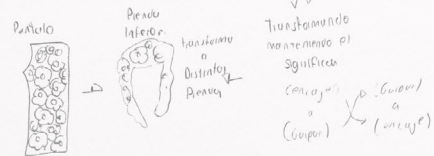 Pañuelo
Prenda
Inferior
transforma
a
Distintas
Prendas
Transformando
manteniendo el
significado
(encaje)
a
(Guipur)
(Guipur)
a
(encaje)